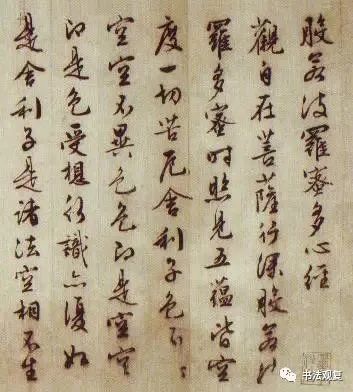 般若波羅蜜多心經
觀自在菩薩行深般若波
羅多蜜時照見五蘊皆空
度一切苦厄舍利子色不
空空不異色色即是空空
即是色受想行識亦復如
是舍利子是諸法空相不生
书法观复